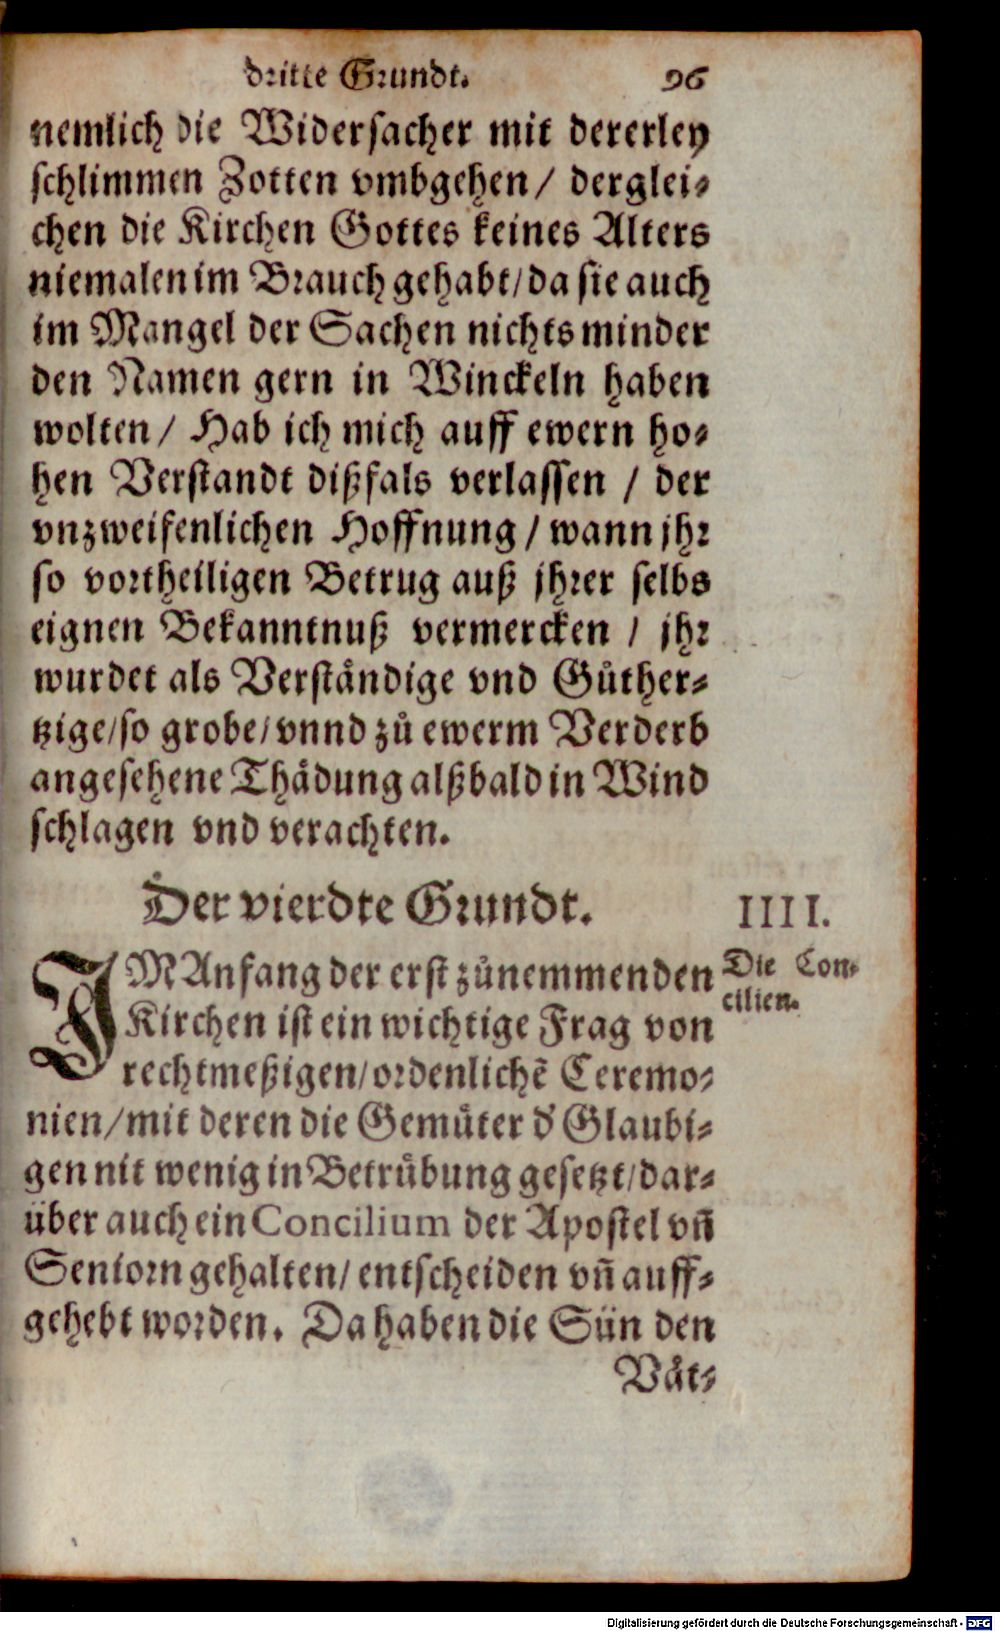 dritte Grundt. 96
nemlich die Widersacher mit dererley
schlimmen Zotten vmbgehen / derglei⸗
chen die Kirchen Gottes keines Alters
niemalen im Brauch gehabt / da sie auch
im Mangel der Sachen nichts minder
den Namen gern in Winckeln haben
wolten / Hab ich mich auff ewern ho⸗
hen Verstandt dißfals verlassen / der
vnzweifenlichen Hoffnung / wann jhr
so vortheiligen Betrug auß jhrer selbs
eignen Bekanntnuß vermercken / jhr
wurdet als Verstaͤndige vnd Guͤther⸗
tzige / so grobe / vnnd zuͦ ewerm Verderb
angesehene Thaͤdung alßbald in Wind
schlagen vnd verachten.
Der vierdte Grundt. IIII.
IM Anfang der erst zuͦnemmenden
Kirchen ist ein wichtige Frag von
rechtmeßigen / ordenlichē Ceremo⸗
nien / mit deren die Gemuͤter d' Glaubi⸗
gen nit wenig in Betruͤbung gesetzt / dar⸗
über auch ein Concilium der Apostel vñ
Seniorn gehalten / entscheiden vñ auff⸗
gehebt worden. Da haben die Sün den
Vaͤt⸗
Die Con⸗
cilien.
Digitalisierung gefördert durch die Deutsche Forschungsgemeinschaft - DFG